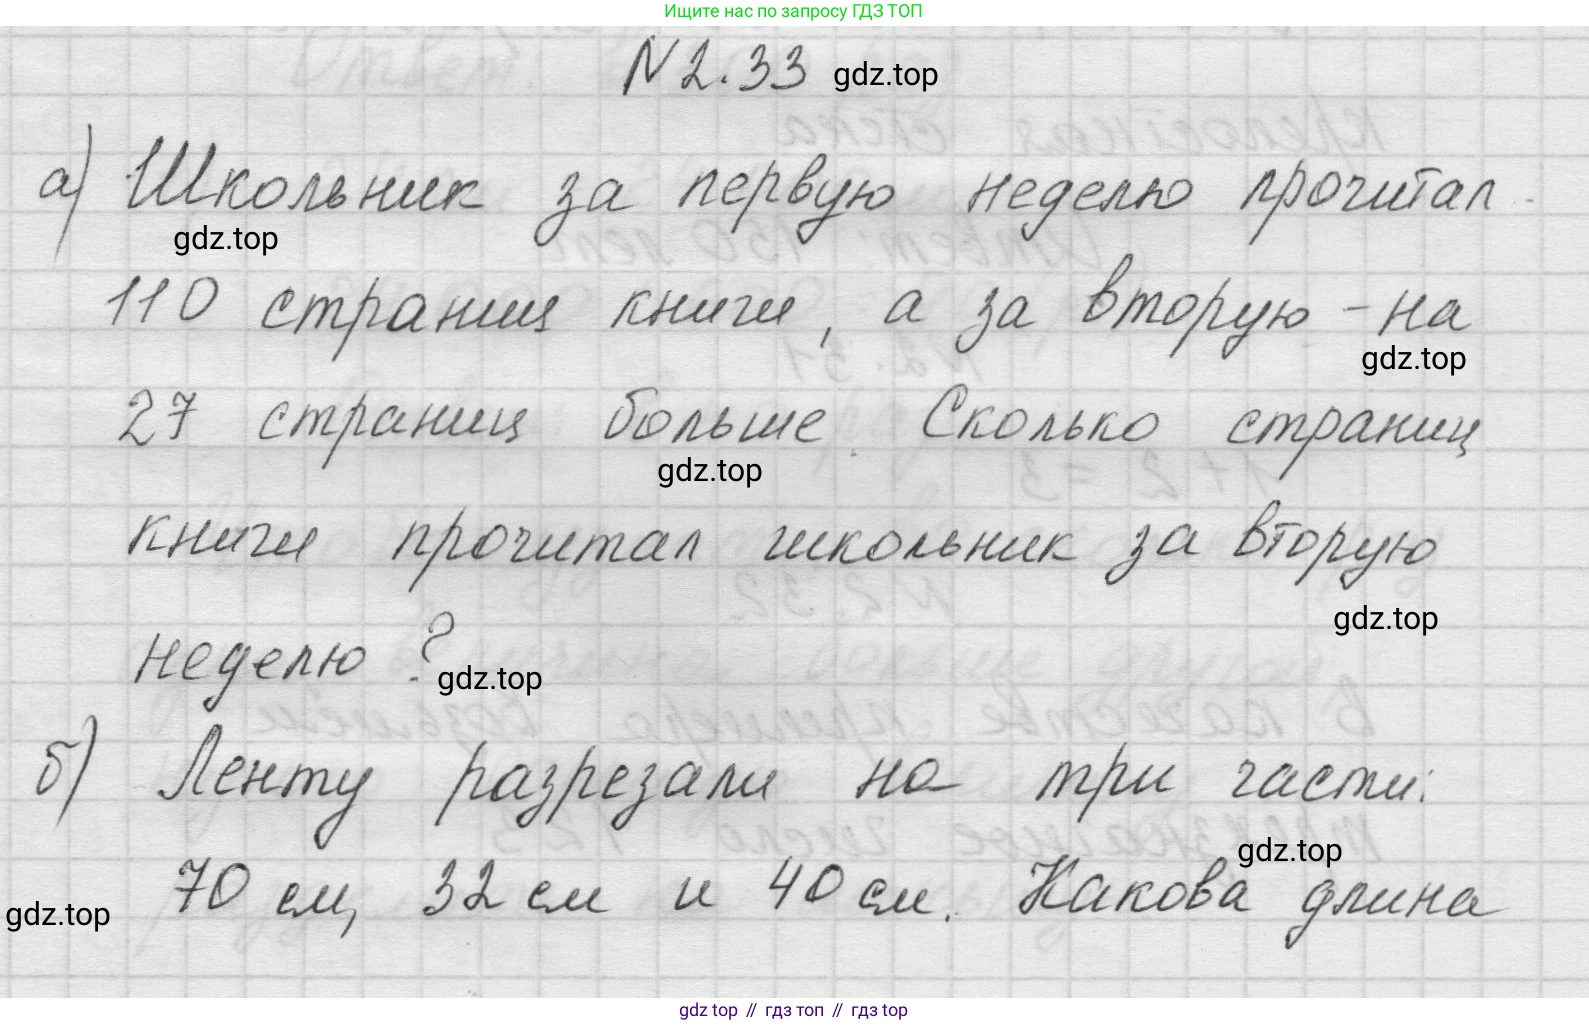 Ищите нас по запросу ГДЗ ТОП
N 2.33 gdz.top
а) Школьник за первую неделю прочитал
gdz.top
110 страниц книги, а за вторую - на
gdz.top
27 страниц больше. Сколько страниц
gdz.top
книги прочитал школьник за вторую
gdz.top
неделю?
gdz.top
б) Ленту разрезали на три части:
gdz.top
70 см, 32 см и 40 см. Какова длина
gdz.top
gdz top // гдз топ // гдз top